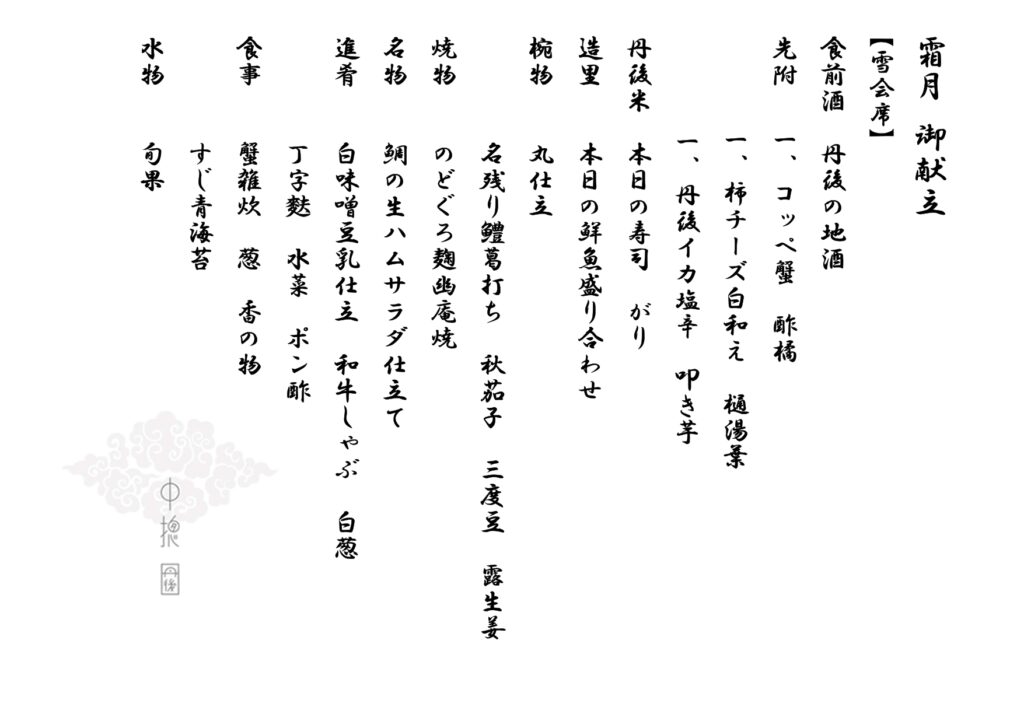 霜月 御献立
【雪会席】
食前酒 丹後の地酒
先附 一、コッペ蟹 酢橘
一、柿チーズ白和え 樋湯葉
一、丹後イカ塩辛 叩き芋
丹後米 本日の寿司 がり
造里 本日の鮮魚盛り合わせ
椀物 丸仕立
名残り鱧葛打ち 秋茄子 三度豆 露生姜
焼物 のどぐろ麹幽庵焼
名物 鯛の生ハムサラダ仕立て
進肴 白味噌豆乳仕立 和牛しゃぶ 白葱
丁字麩 水菜 ポン酢
食事 蟹雑炊 葱 香の物
すじ青海苔
水物 旬果
丹後